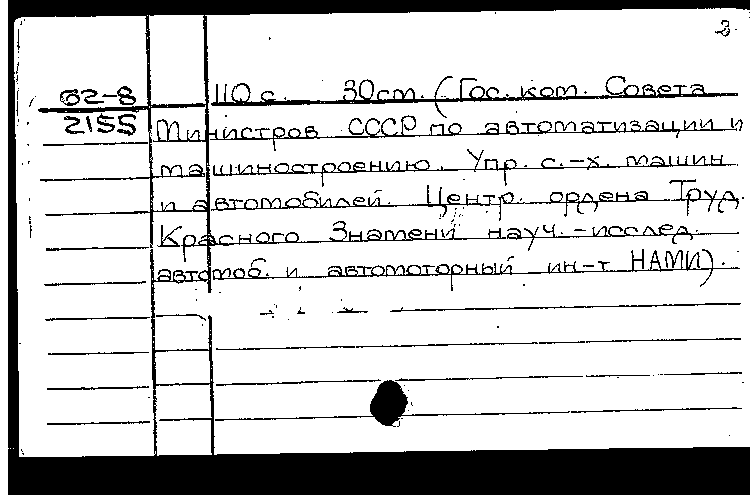 2.
62-8 110 с. 30 см. (Гос. ком. Совета
2155 Министров СССР по автоматизации и
машиностроению. Упр. с.-х. машин
и автомобилей. Центр. ордена Труд.
Красного Знамени науч.-исслед.
автомоб. и автомоторный ин-т НАМИ).